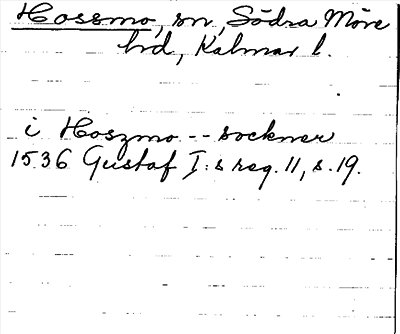 Hossmo, sn, Södra Möre
hd, Kalmar l.
i Hoszmo -- sockner
1536 Gustaf I:s reg. 11, s. 19.